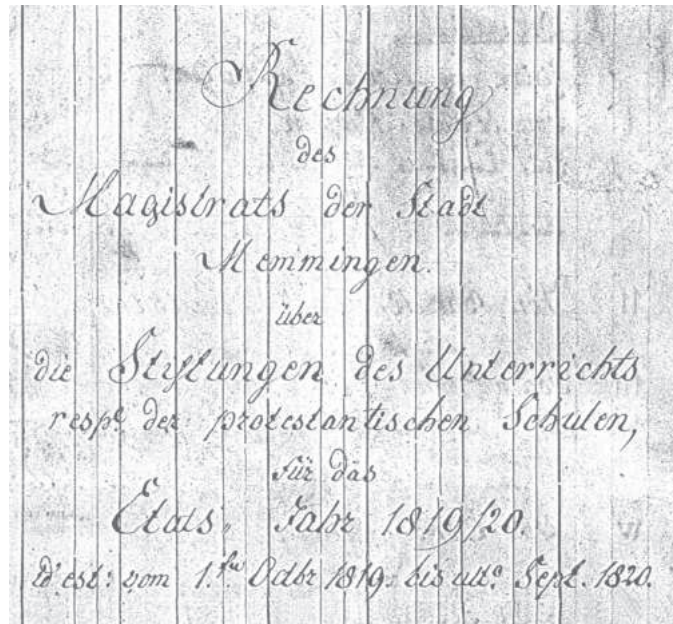 Rechnung
des
Magistrats der Stadt
Memmingen.
über
die Styftungen des Unterrichts
respe. der protestantischen Schulen,
für das
Etats, Jahr 1819/20.
id est: vom 1.ten Octbr 1819. bis ulto. Sept. 1820.